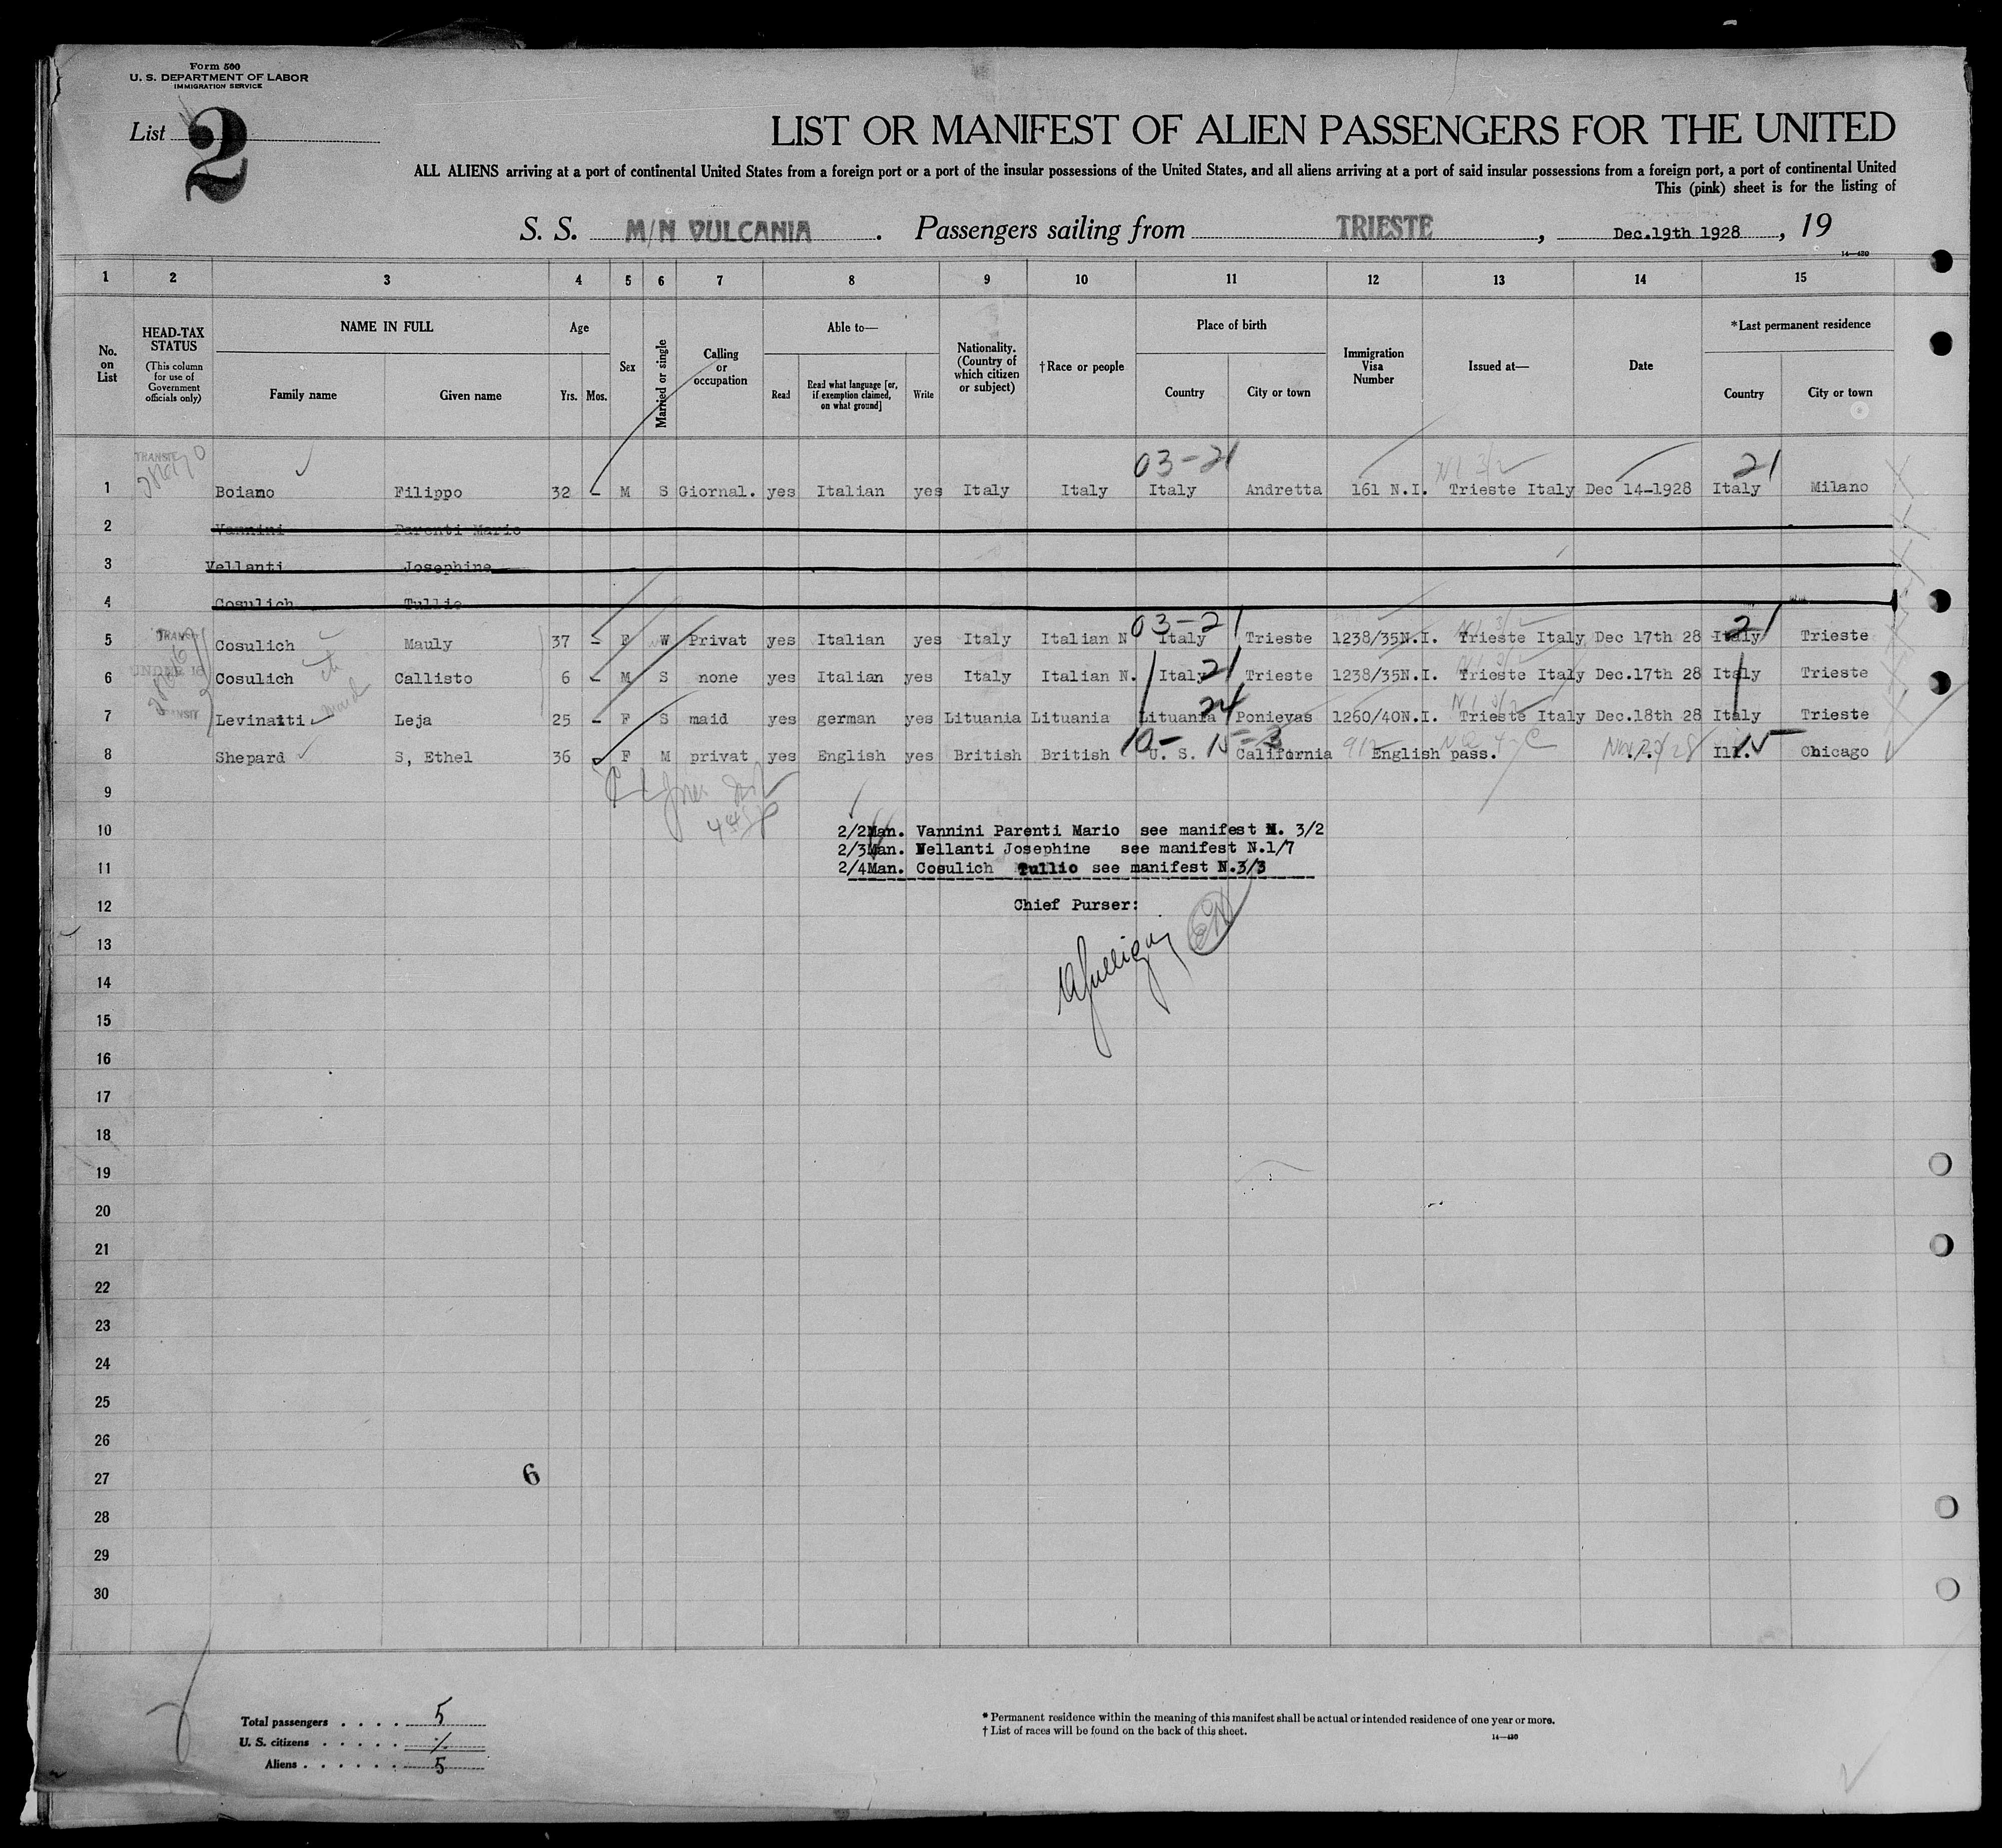 Form 500
U. S. DEPARTMENT OF LABOR
IMMIGRATION SERVICE
List 2
LIST OR MANIFEST OF ALIEN PASSENGERS FOR THE UNITED
ALL ALIENS arriving at a port of continental United States from a foreign port or a port of the insular possessions of the United States, and all aliens arriving at a port of said insular possessions from a foreign port, a port of continental United
This (pink) sheet is for the listing of
S. S. M/N VULCANIA. Passengers sailing from TRIESTE, Dec.19th 1928, 19
14—430
1 2 3 4 5 6 7 8 9 10 11 12 13 14 15
No. on List
HEAD-TAX STATUS
(This column for use of Government officials only)
NAME IN FULL
Family name Given name
Age
Yrs. Mos.
Sex
Married or single
Calling or occupation
Able to—
Read
Read what language [or, if exemption claimed, on what ground]
Write
Nationality. (Country of which citizen or subject)
†Race or people
Place of birth
Country City or town
Immigration Visa Number
Issued at—
Date
*Last permanent residence
Country City or town
03-21 21
1 Boiano Filippo 32 - M S Giornal. yes Italian yes Italy Italy Italy Andretta 161 N.I. Trieste Italy Dec 14-1928 Italy Milano
2 Vannini Parenti Mario
3 Vellanti Josephine
4 Cosulich Tullio
03-21 21
5 Cosulich Mauly 37 - F W Privat yes Italian yes Italy Italian N Italy Trieste 1238/35N.I. Trieste Italy Dec 17th 28 Italy Trieste
6 Cosulich Callisto 6 - M S none yes Italian yes Italy Italian N. Italy 21 Trieste 1238/35N.I. Trieste Italy Dec.17th 28 Italy Trieste
7 Levinatti Leja 25 - F S maid yes german yes Lituania Lituania Lituania 24 Ponievas 1260/40N.I. Trieste Italy Dec.18th 28 Italy Trieste
8 Shepard S, Ethel 36 F M privat yes English yes British British U. S. California 912 English pass. Ill. 15 Chicago
9
10 2/2Man. Vannini Parenti Mario see manifest N. 3/2
2/3Man. Vellanti Josephine see manifest N.1/7
11 2/4Man. Cosulich Tullio see manifest N.3/3
12 Chief Purser:
13
14
15
16
17
18
19
20
21
22
23
24
25
26
27 6
28
29
30
Total passengers . . . . 5
U. S. citizens . . . . .
Aliens . . . . . . 5
* Permanent residence within the meaning of this manifest shall be actual or intended residence of one year or more.
† List of races will be found on the back of this sheet.
14—430